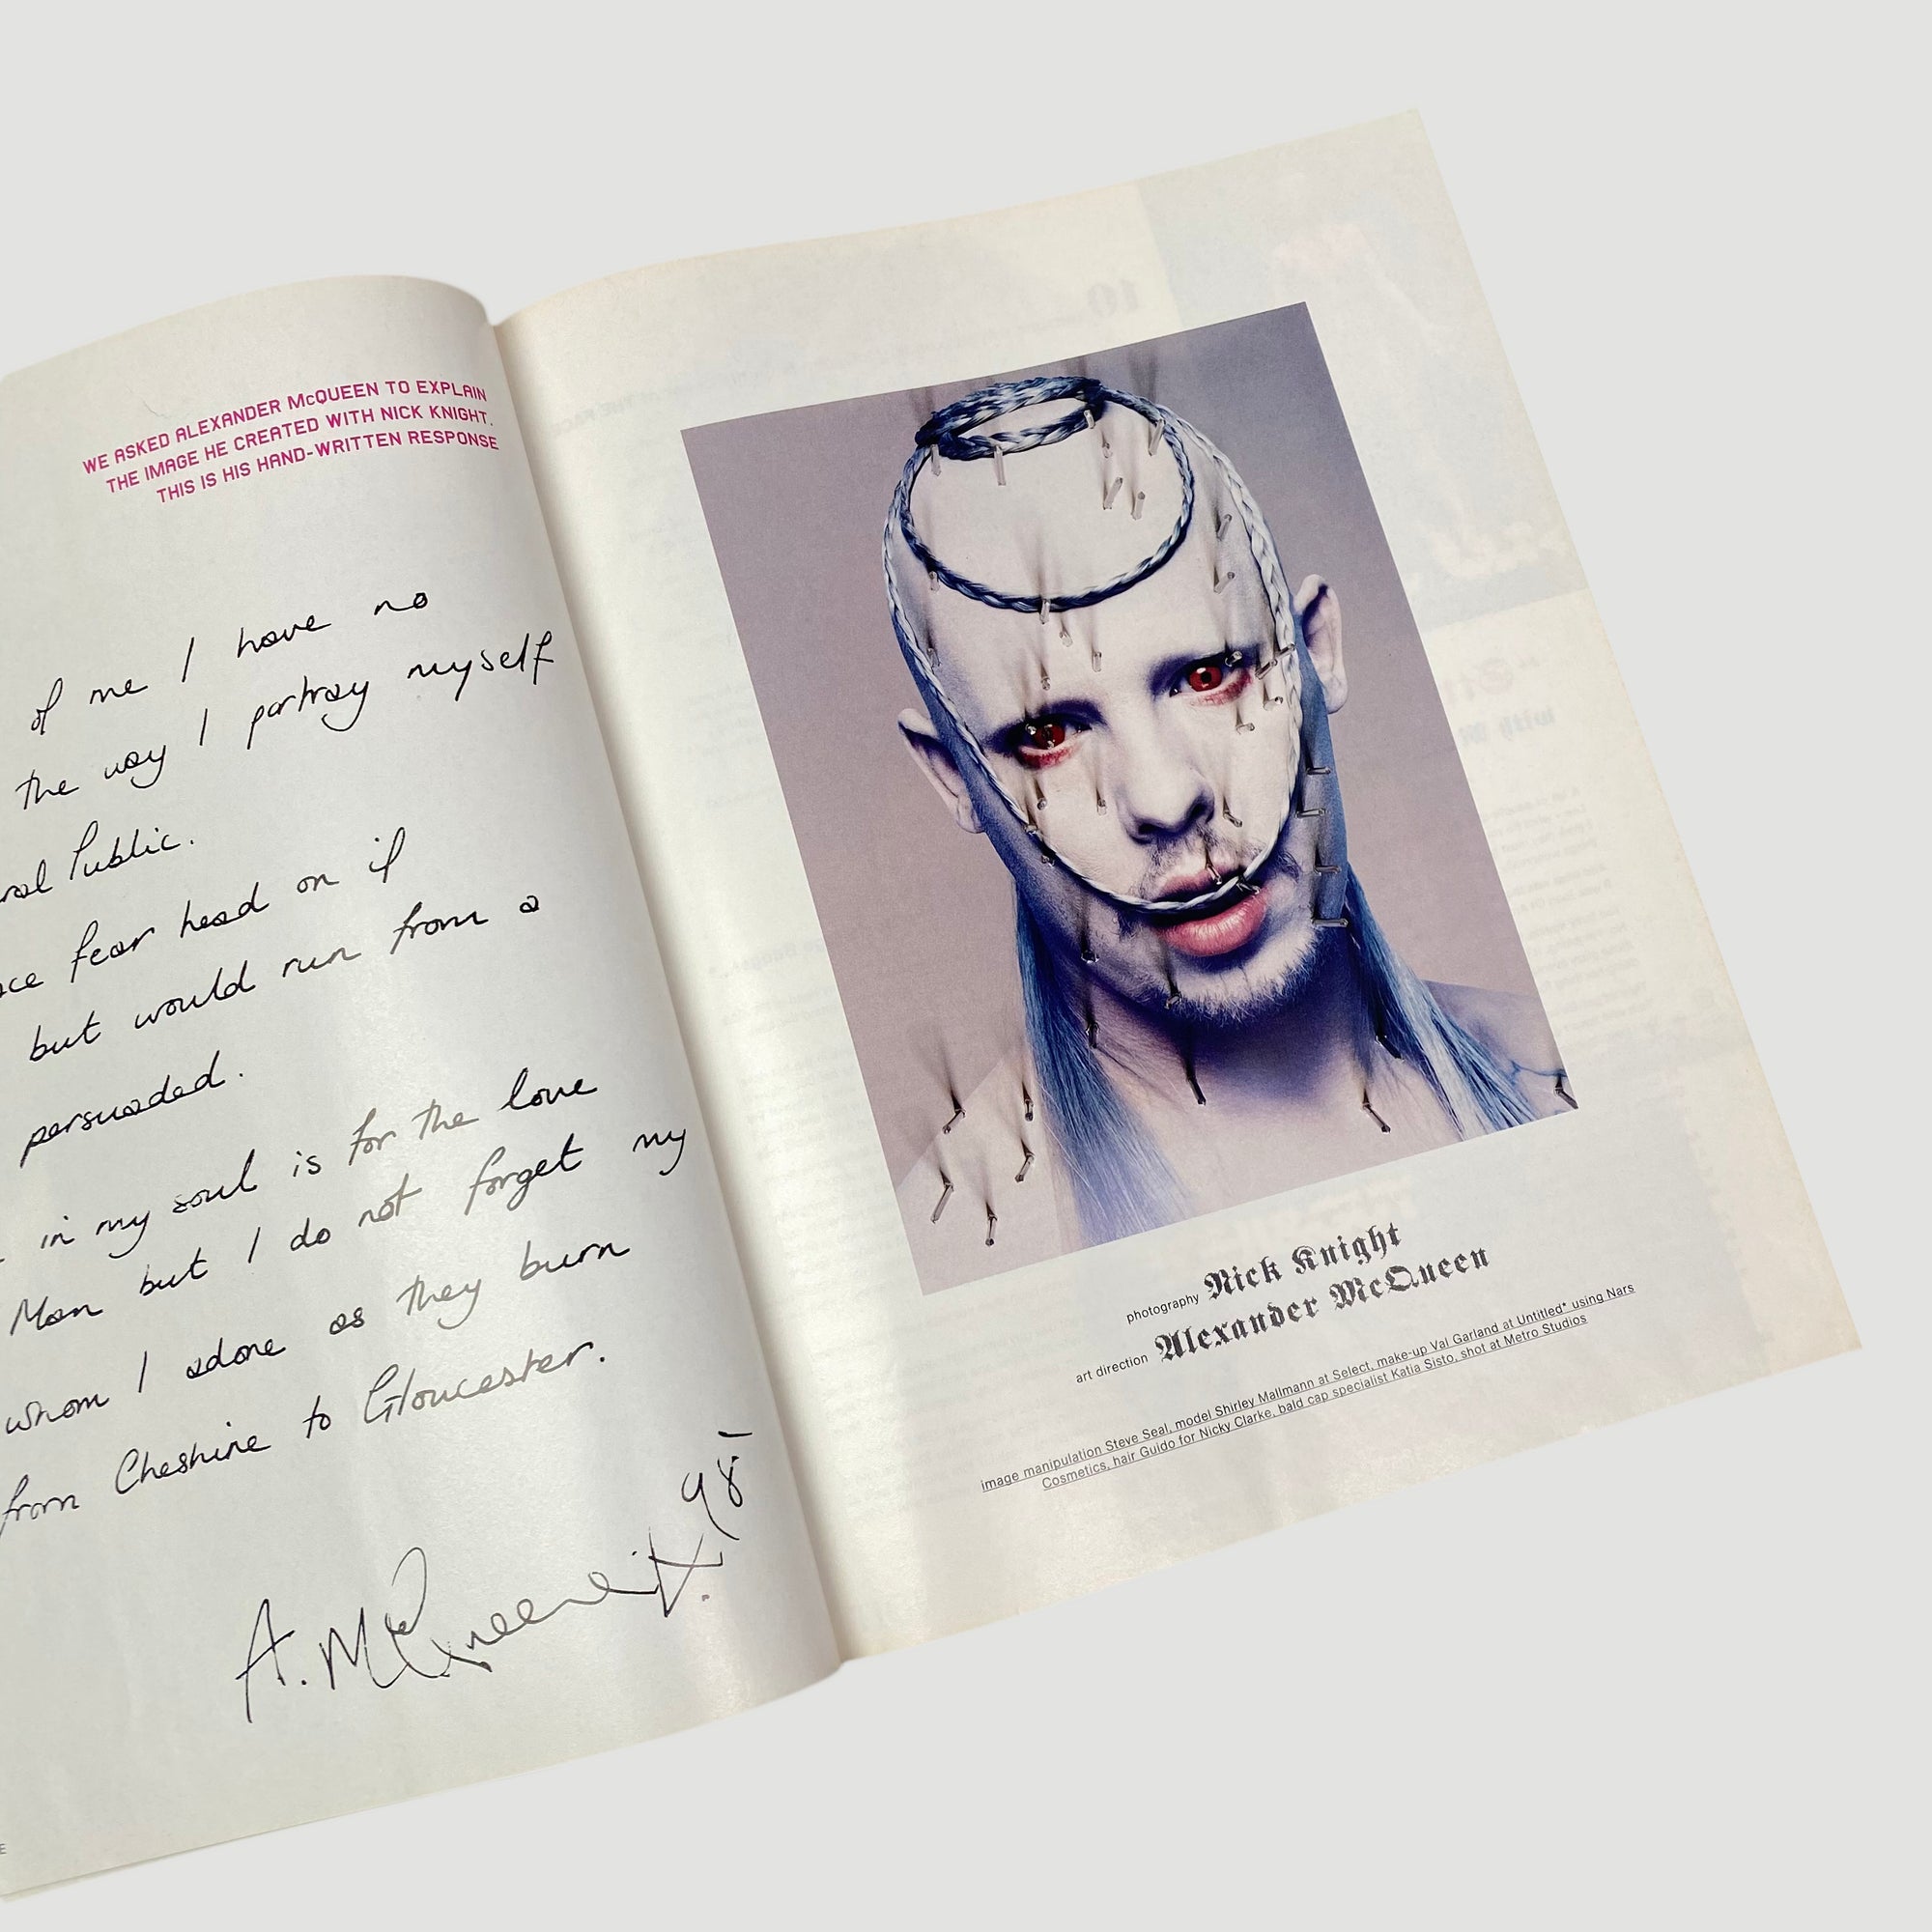 WE ASKED ALEXANDER McQUEEN TO EXPLAIN
THE IMAGE HE CREATED WITH NICK KNIGHT.
THIS IS HIS HAND-WRITTEN RESPONSE
of me I have no
the way I portray myself
Public.
fear head on if
but would run from a
persuaded.
in my soul is for the love
Man but I do not forget my
whom I adore as they burn
from Cheshire to Gloucester.
A. McQueen 98
photography Nick Knight
art direction Alexander McQueen
image manipulation Steve Seal, model Shirley Mallmann at Select, make-up Val Garland at Untitled* using Nars
Cosmetics, hair Guido for Nicky Clarke, bald cap specialist Katia Sisto, shot at Metro Studios